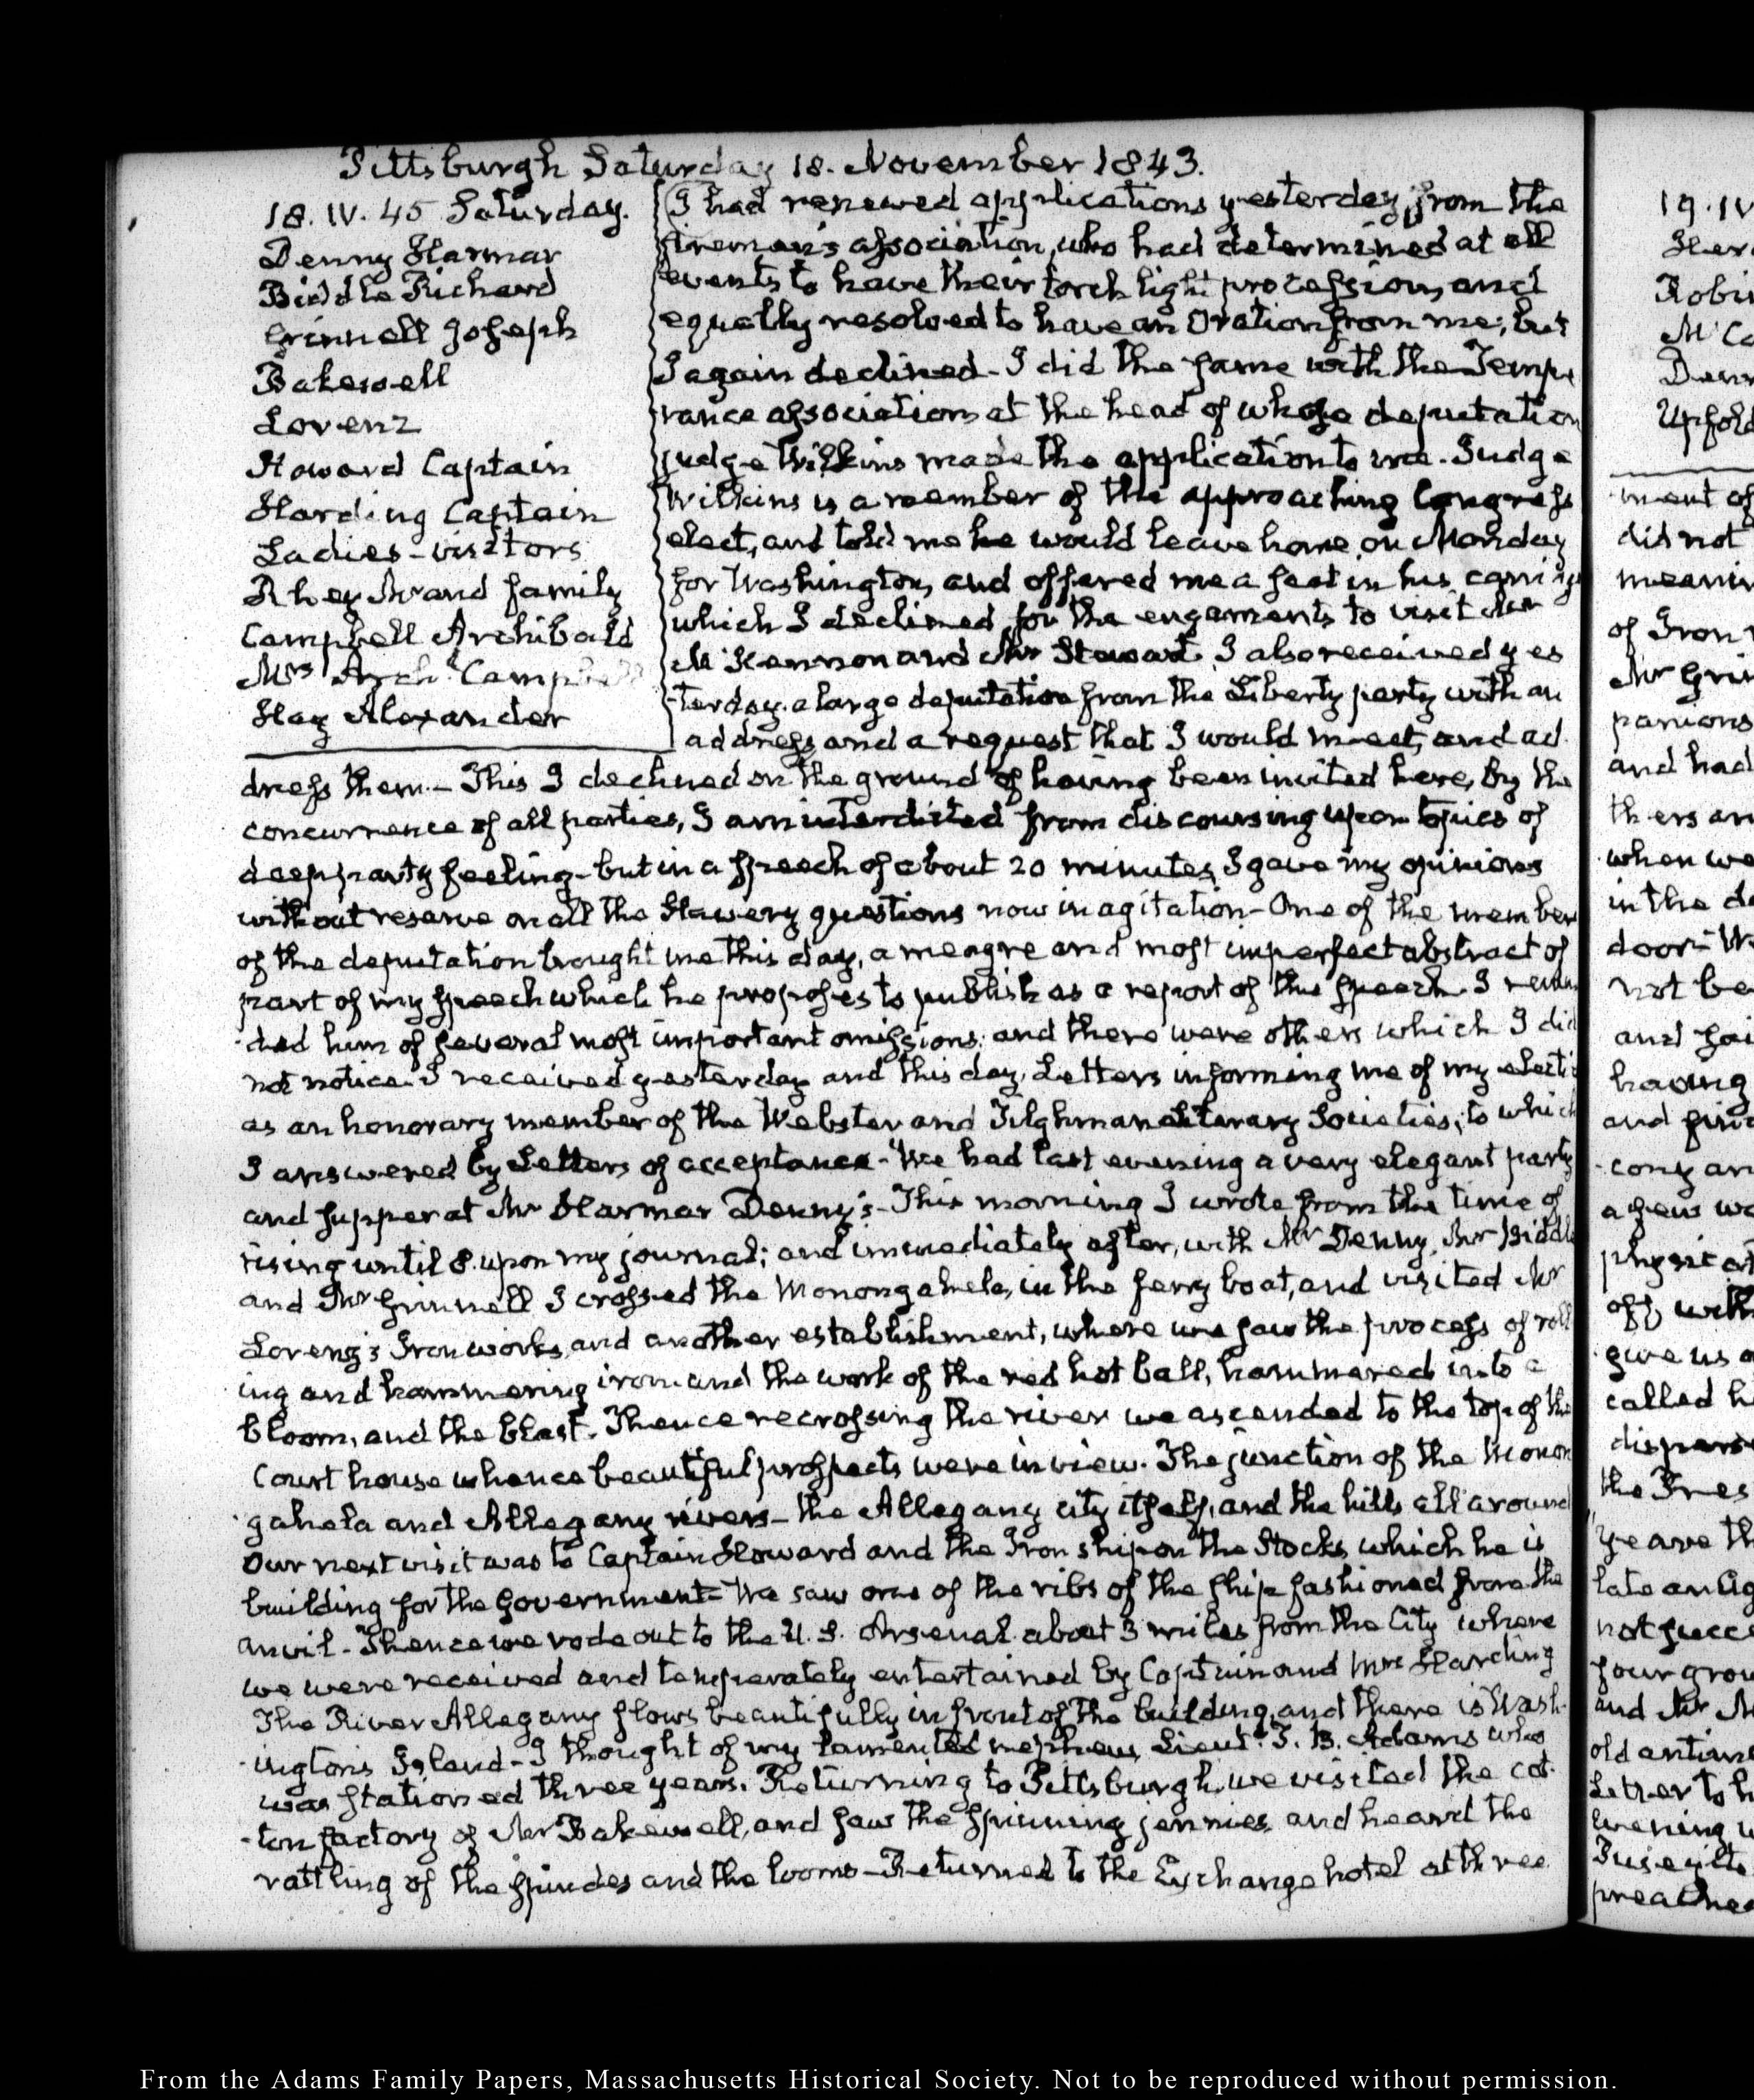 Pittsburgh Saturday 18. November 1843.
18. IV. 45 Saturday.
Denny Harmar
Biddle Richard
Grinnell Joseph
Bakewell
Lorenz
Howard Captain
Harding Captain
Ladies-visitors
Rhey Mr and family
Campbell Archibald
Mrs Archd. Campbell
Hay Alexander
I had renewed applications yesterday, from the
fireman's association, who had determined at all
events to have their torch light procession, and
equally resolved to have an Oration from me; but
I again declined- I did the same with the Tempe
rance association, at the head of whose deputation
judge Wilkins made the application to me. Judge
Wilkins is a member of the approaching Congress
elect, and told me he would leave home, on Monday
for Washington, and offered me a seat in his carriage
which I declined, for the engaments to visit Mr
McKennon and Mr Stewart. I also received yes
terday, a large deputation from the Liberty party with an
address, and a request that I would meet, and ad
dress them.- This I declined on the ground of having been invited here, by the
concurrence of all parties, I am interdicted from discoursing upon topics of
deep party feeling- but in a speech of about 20 minutes, I gave my opinions
without reserve on all the Slavery questions now in agitation- One of the member
of the deputation brought me this day, a meagre and most imperfect abstract of
part of my speech which he proposes to publish as a report of the speech. I remin
ded him of several most important omissions; and there were others which I did
not notice. I received yesterday and this day, Letters informing me of my electi
as an honorary member of the Webster and Tilghman Literary Societies; to which
I answered by Letters of acceptance- We had last evening a very elegant party
and supper at Mr Harmar Denny's- This morning I wrote from the time of
rising until 8. upon my journal; and immediately after, with Mr Denny, Mr Biddle
and Mr Grinnell I crossed the Monongahela, in the ferry boat, and visited Mr
Lorenz's Iron works, and another establishment, where we saw the process of roll
ing and hammering iron. and the work of the red hot ball, hammered into a
bloom, and the blast. Thence recrossing the river we ascended to the top of the
Court house whence beautiful prospects were in view. The junction of the Monon
gahela and Allegany rivers- the Allegany city itself, and the hills all around
Our next visit was to Captain Howard and the Iron ship on the Stocks, which he is
building for the Government- We saw one of the ribs of the ship fashioned from the
anvil- Thence we rode out to the U. S. Arsenal about 3 miles from the City where
we were received and temperately entertained by Captain and Mrs Harding
The River Allegany flows beautifully in front of the building, and there is Wash-
ington's Island- I thought of my lamented nephew, Lieut. T. B. Adams who
was stationed three years. Returning to Pittsburgh, we visited the cot-
ton factory of Mr Bakewell, and saw the spinning jennies, and heard the
rattling of the spindes and the looms- Returned to the Exchange hotel at three
19. IV
Robi
Mc Ca
Denn
Upfold
ment of
did not
meanin
of Iron
Mr Grin
panions
and had
thers an
when we
in the d
door- W
not be
and sai
having
and
cony an
a few wo
physic
off, with
give us a
called h
dispers
the Pres
ye are th
late
not succe
four grou
and Mr M
old
Letter to h
Evening w
preache
From the Adams Family Papers, Massachusetts Historical Society. Not to be reproduced without permission.